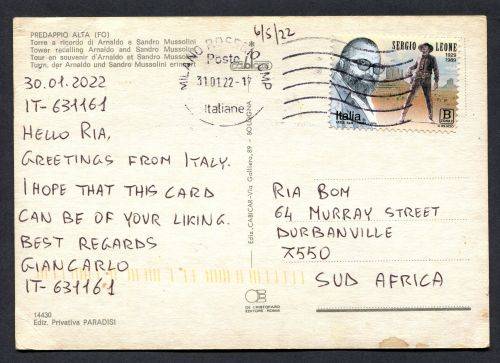 PREDAPPIO ALTA (FO)
Torre a ricordo di Arnaldo e Sandro Mussolini
Tower recalling Arnaldo and Sandro Mussolini
Tour en souvenir d'Arnaldo et Sandro Mussolini
Tugn. der Arnaldo und Sandro Mussolini
30.01.2022
IT-631161
HELLO RIA,
GREETINGS FROM ITALY.
I HOPE THAT THIS CARD
CAN BE OF YOUR LIKING.
BEST REGARDS
GIANCARLO
IT-631161
14430
Ediz. Privativa PARADISI
Ediz. CABICAR-Via Galliera, 89 - BOLOGNA
DE CRISTOFARO
EDITORE ROMA
6/5/22
MILANO CMP
Poste
31.01.22-17
Italiane
SERGIO LEONE
1929
1989
Italia
B
RIA BOM
64 MURRAY STREET
DURBANVILLE
7550
SUD AFRICA